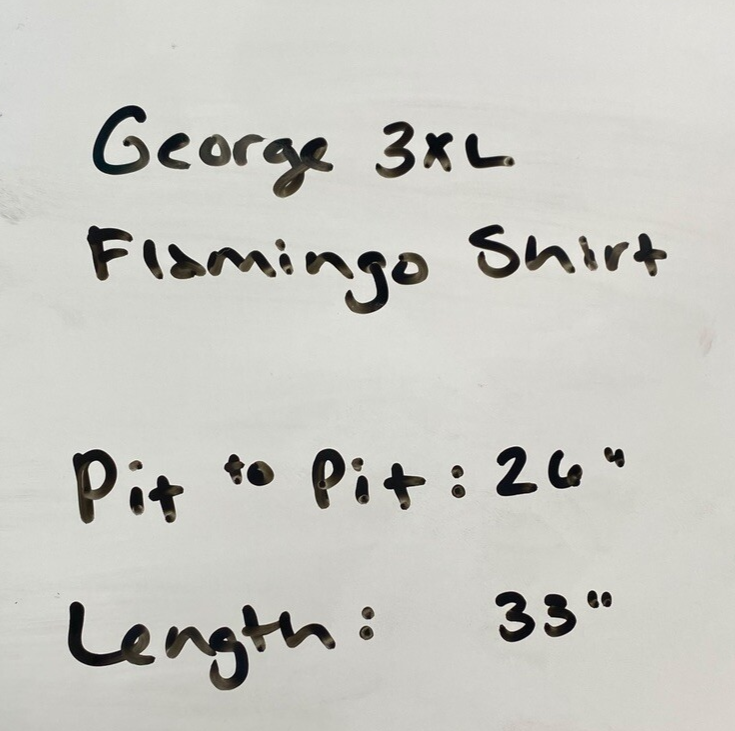 George 3XL
Flamingo Shirt
Pit to Pit: 26"
Length: 33"